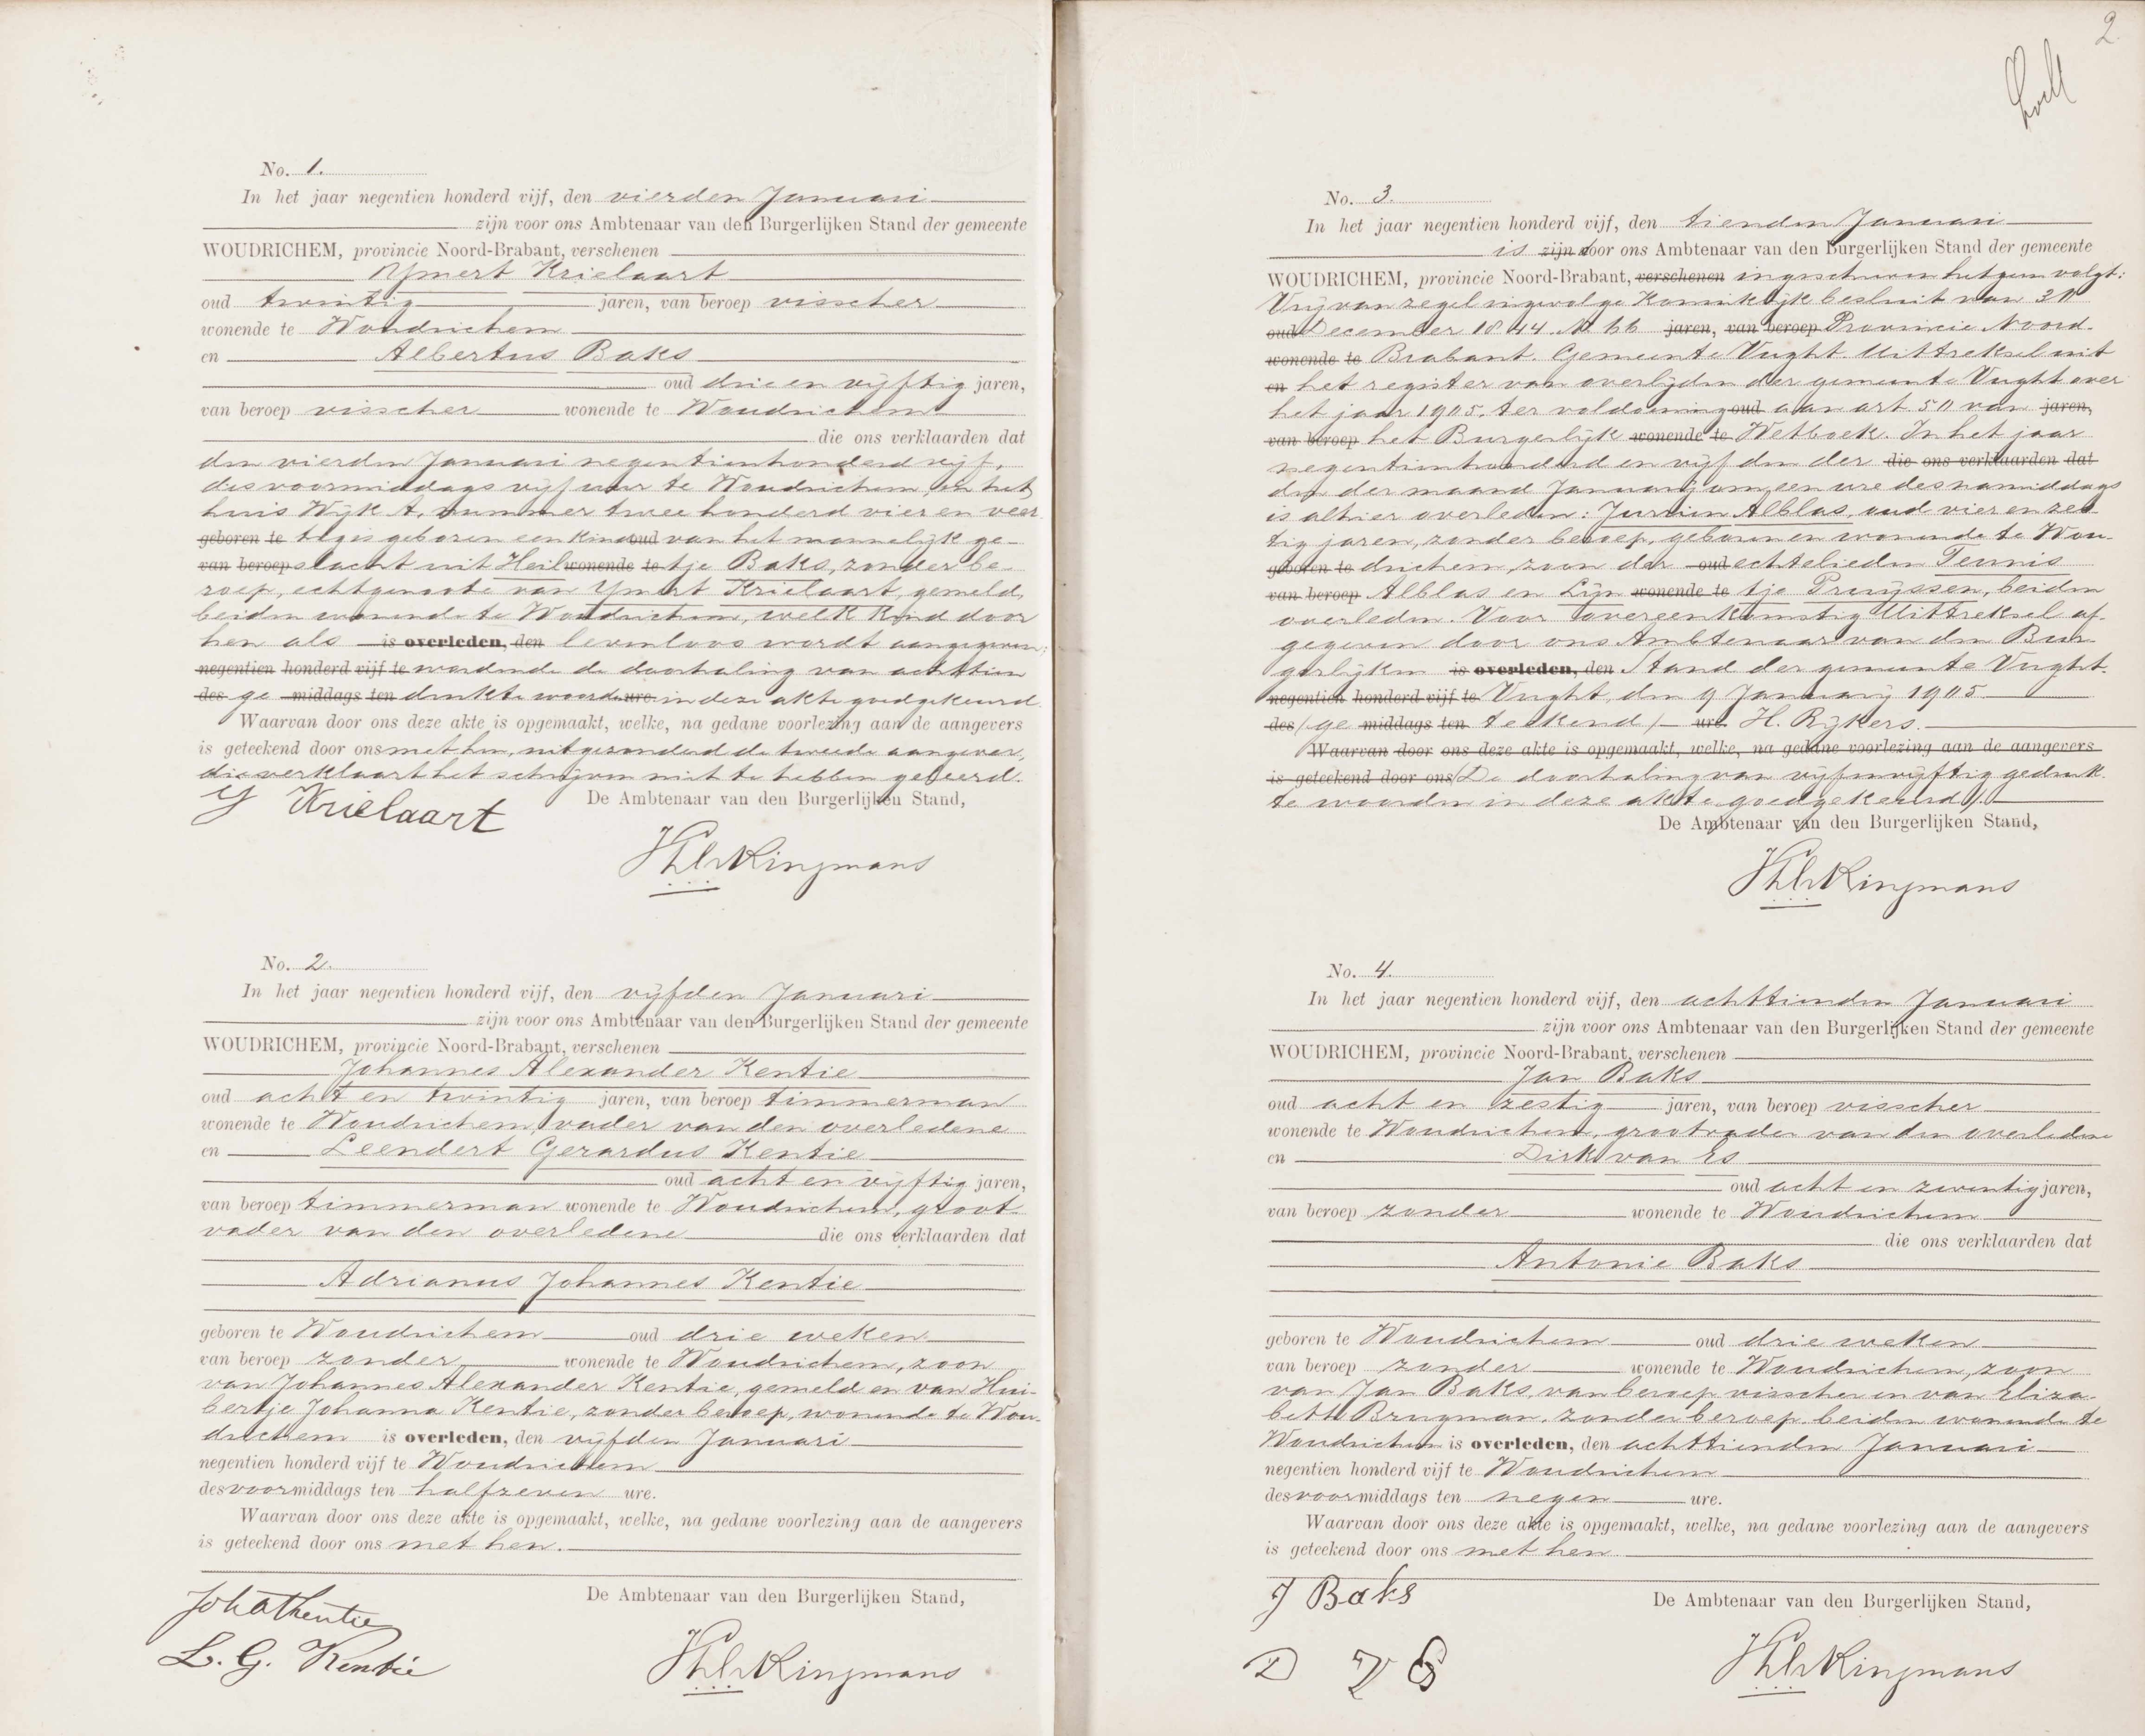 No. 1.
In het jaar negentien honderd vijf, den vierden Januari
zijn voor ons Ambtenaar van den Burgerlijken Stand der gemeente
WOUDRICHEM, provincie Noord-Brabant, verschenen
Ymert Krielaart
oud twintig jaren, van beroep visscher
wonende te Woudrichem
en Albertus Baks
oud drie en vijftig jaren,
van beroep visscher wonende te Woudrichem
die ons verklaarden dat
den vierden Januari negentienhonderd vijf,
des voormiddags vijf uur te Woudrichem in het
huis Wijk A, nummer twee honderd vier en veer
geboren te tig is geboren een kind oud van het mannelijk ge-
van beroep slacht uit Heil wonende te tje Baks, zonder be-
roep, echtgenoote van Ymert Krielaart, gemeld,
beiden wonende te Woudrichem, welk kind door
hen als is overleden, den levenloos wordt aangegeven;
negentien honderd vijf te wordende de doorhaling van achttien
des ge middags ten drukte woorden ure in deze akte goedgekeurd.
Waarvan door ons deze akte is opgemaakt, welke, na gedane voorlezing aan de aangevers
is geteekend door ons met hen, uitgezonderd de tweede aangever,
die verklaart het schrijven niet te hebben geleerd.
Y Krielaart
De Ambtenaar van den Burgerlijken Stand,
No. 2.
In het jaar negentien honderd vijf, den vijfden Januari
zijn voor ons Ambtenaar van den Burgerlijken Stand der gemeente
WOUDRICHEM, provincie Noord-Brabant, verschenen
Johannes Alexander Kentie
oud acht en twintig jaren, van beroep timmerman
wonende te Woudrichem, vader van den overledene
en Leendert Gerardus Kentie
oud acht en vijftig jaren,
van beroep timmerman wonende te Woudrichem, groot-
vader van den overledene die ons verklaarden dat
Adrianus Johannes Kentie
geboren te Woudrichem oud drie weken
van beroep zonder wonende te Woudrichem, zoon
van Johannes Alexander Kentie, gemeld en van Hui-
bertje Johanna Kentie, zonder beroep, wonende te Wou-
drichem is overleden, den vijfden Januari
negentien honderd vijf te Woudrichem
des voormiddags ten halfzeven ure.
Waarvan door ons deze akte is opgemaakt, welke, na gedane voorlezing aan de aangevers
is geteekend door ons met hen.
De Ambtenaar van den Burgerlijken Stand,
L. G. Kentie
2
No. 3.
In het jaar negentien honderd vijf, den tienden Januari
is zijn voor ons Ambtenaar van den Burgerlijken Stand der gemeente
WOUDRICHEM, provincie Noord-Brabant, verschenen ingeschreven hetgeen volgt:
Vrij van zegel ingevolge Koninklijk besluit van 31
oud December 1844. No 66 jaren, van beroep Provincie Noord-
wonende te Brabant. Gemeente Vught Uittreksel uit
en het register van overlijden der gemeente Vught over
het jaar 1905, ter voldoening oud aan art. 50 van jaren,
van beroep het Burgerlijk wonende te Wetboek. In het jaar
negentienhonderd en vijf den der die ons verklaarden dat
den der maand Januarij om een ure des namiddags
is alhier overleden: Jurrien Alblas, oud vier en zes
tig jaren, zonder beroep, geboren en wonende te Wou-
geboren te drichem, zoon der oud echtelieden Teunis
van beroep Alblas en Lijn wonende te tje Pruijssen, beiden
overleden. Voor overeenkomstig Uittreksel af-
gegeven door ons Ambtenaar van den Bur-
gerlijken is overleden, den Stand der gemeente Vught.
negentien honderd vijf te Vught, den 9 Januarij 1905
des /ge middags ten teekend/ ure H. Rijkers.
Waarvan door ons deze akte is opgemaakt, welke, na gedane voorlezing aan de aangevers
is geteekend door ons /De doorhaling van vijfenvijftig gedruk-
te woorden in deze akte goedgekeurd/.
De Ambtenaar van den Burgerlijken Stand,
No. 4.
In het jaar negentien honderd vijf, den achttienden Januari
zijn voor ons Ambtenaar van den Burgerlijken Stand der gemeente
WOUDRICHEM, provincie Noord-Brabant, verschenen
Jan Baks
oud acht en zestig jaren, van beroep visscher
wonende te Woudrichem, grootvader van den overledene
en Dirk van Es
oud acht en zeventig jaren,
van beroep zonder wonende te Woudrichem
die ons verklaarden dat
Antonie Baks
geboren te Woudrichem oud drie weken
van beroep zonder wonende te Woudrichem, zoon
van Jan Baks, van beroep visscher en van Eliza-
beth Brugman, zonder beroep, beiden wonende te
Woudrichem is overleden, den achttienden Januari
negentien honderd vijf te Woudrichem
des voormiddags ten negen ure.
Waarvan door ons deze akte is opgemaakt, welke, na gedane voorlezing aan de aangevers
is geteekend door ons met hen
J Baks
De Ambtenaar van den Burgerlijken Stand,